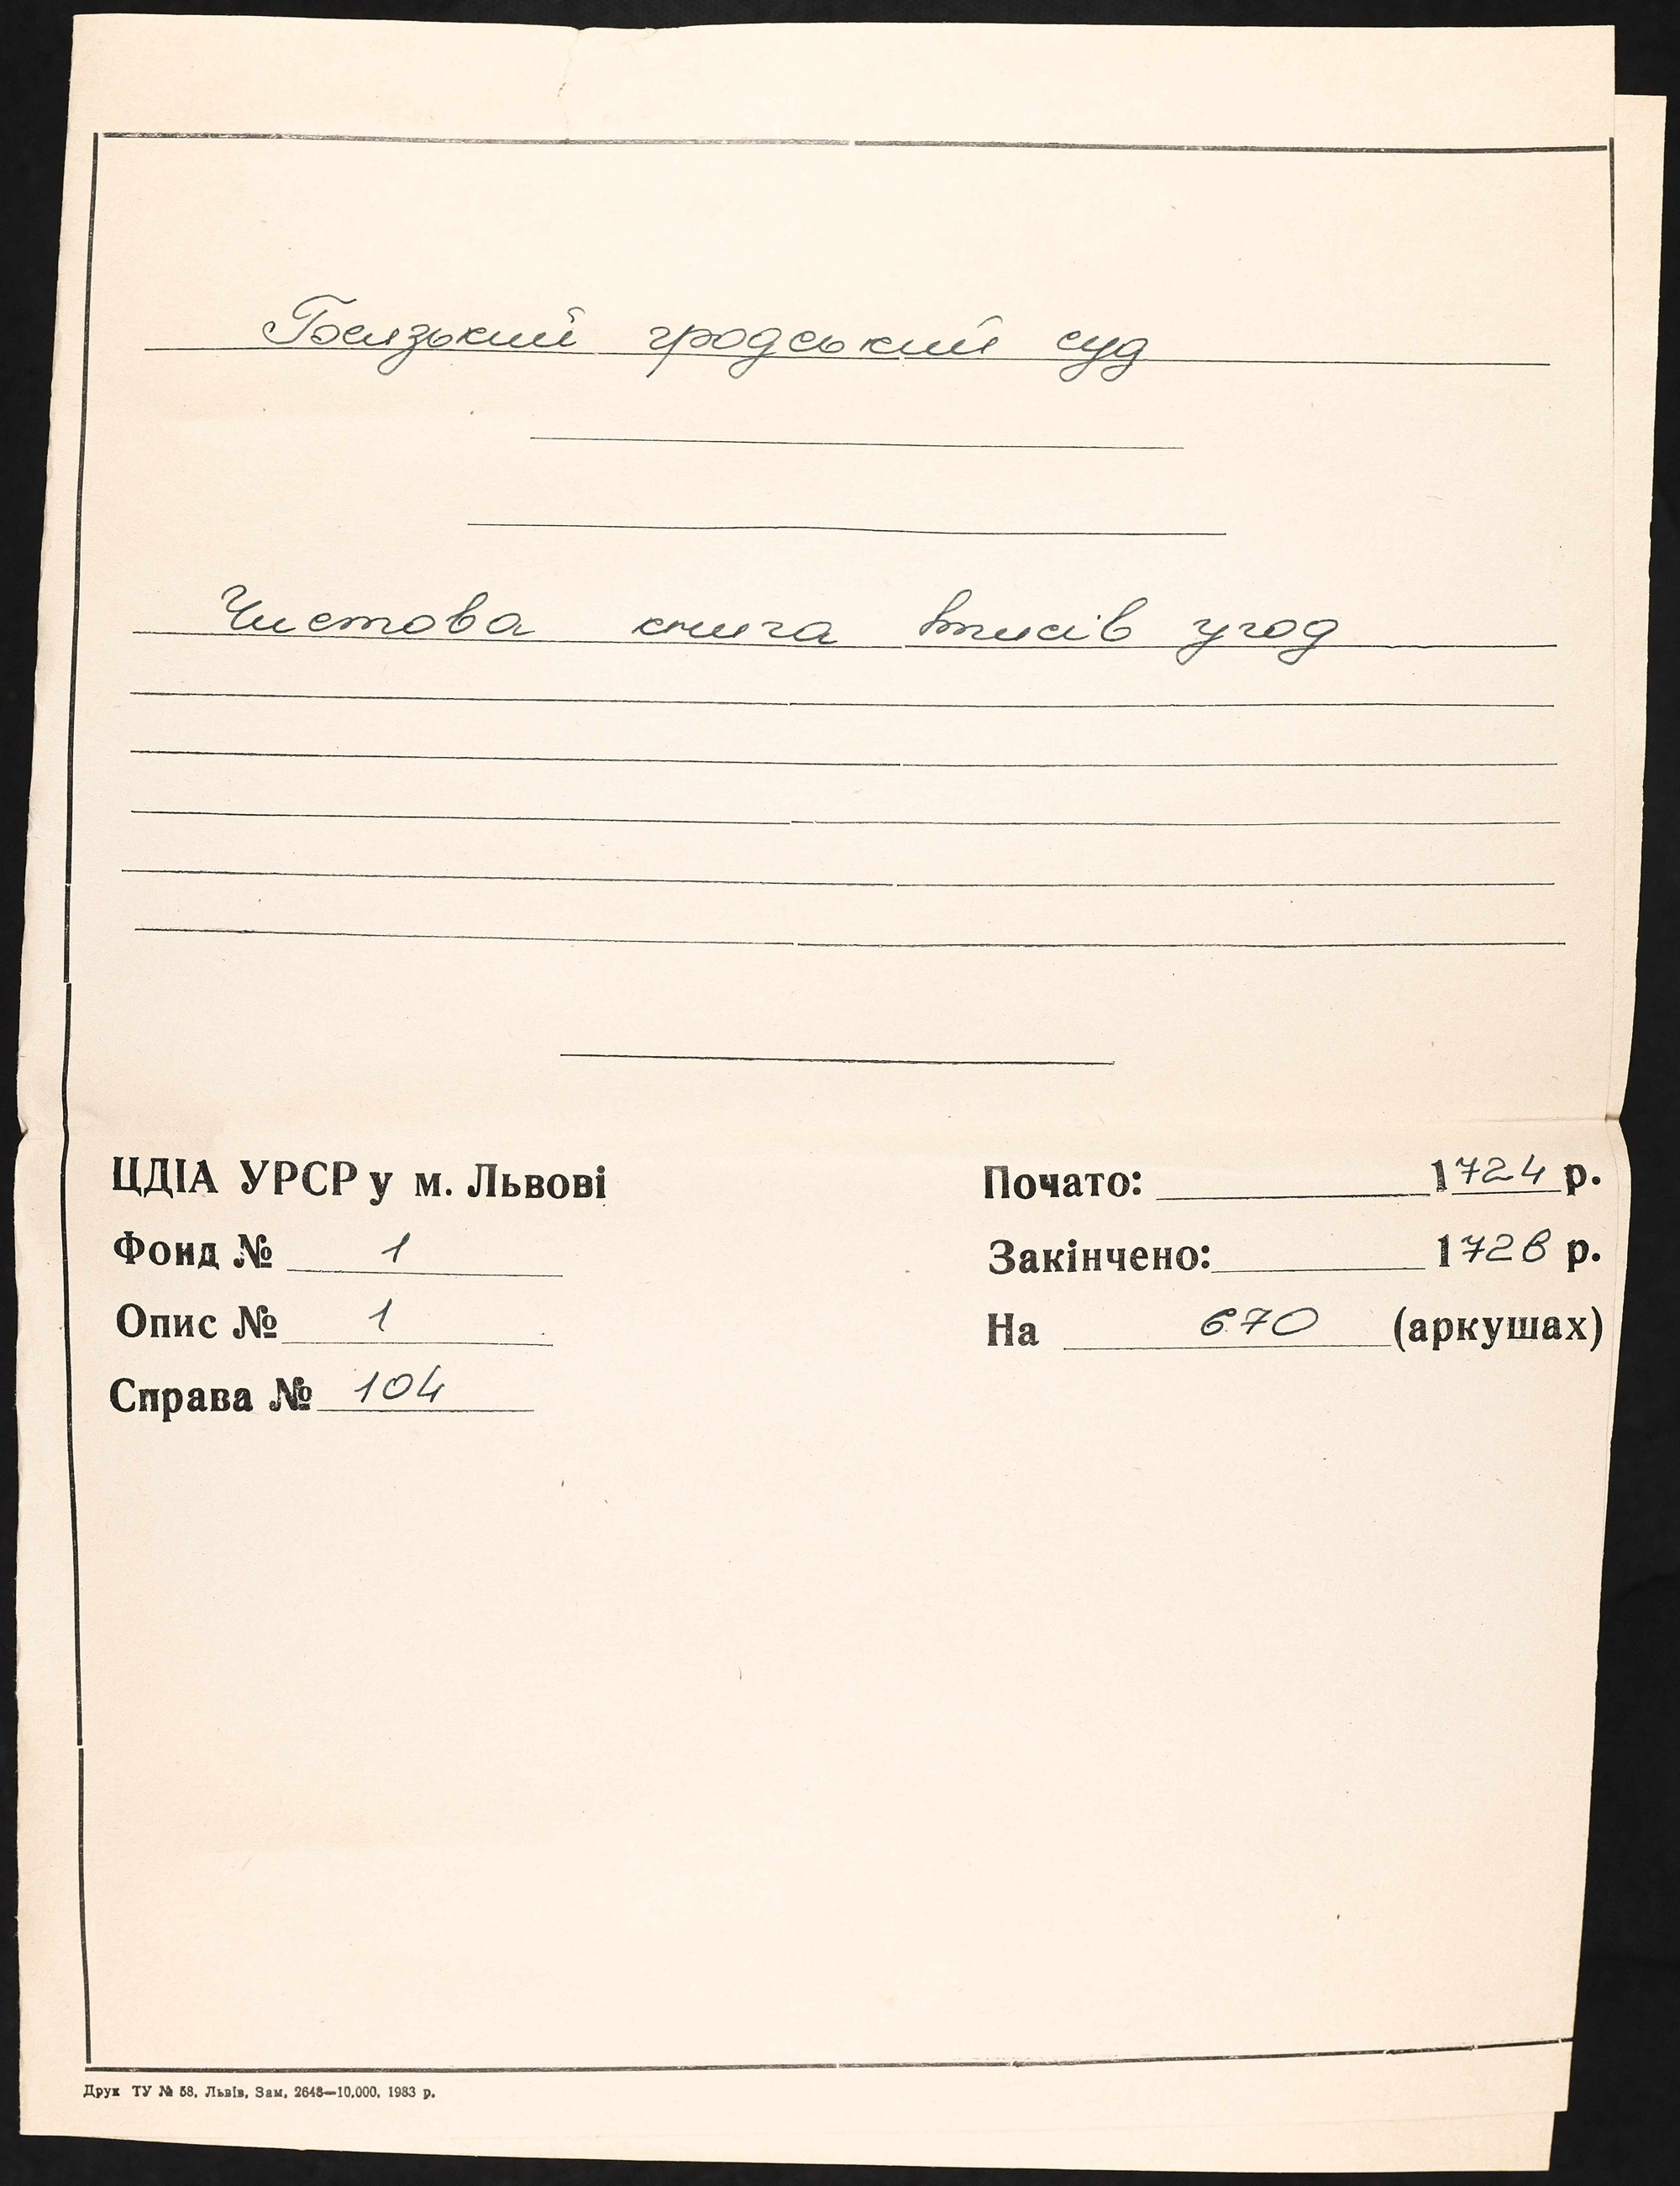 Белзький гродський суд
Чистова книга вписів угод
ЦДІА УРСР у м. Львові
Фонд № 1
Опис № 1
Справа № 104
Почато: 1724 р.
Закінчено: 1728 р.
На 670 (аркушах)
Друк ТУ № 58, Львів, Зам, 2648—10.000, 1983 р.